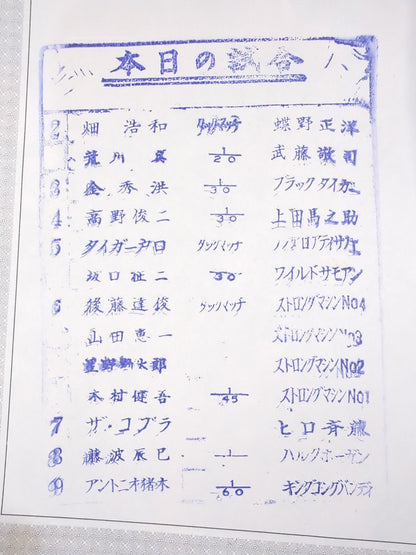 本日の試合
2 畑 浩和 タッグマッチ 蝶野正洋
荒川 真 1/20 武藤敬司
3 金秀洪 1/30 ブラックタイガー
4 高野俊二 1/30 上田馬之助
5 タイガー戸口 タッグマッチ
坂口征二 1/30 ワイルドサモアン
6 後藤達俊 タッグマッチ ストロングマシンNO4
山田恵一 ストロングマシンNO3
星野勘太郎 ストロングマシンNO2
木村健吾 1/45 ストロングマシンNO1
7 ザ・コブラ ヒロ斉藤
8 藤波辰巳 1/ ハルクホーガン
9 アントニオ猪木 1/60 キングコングバンディ